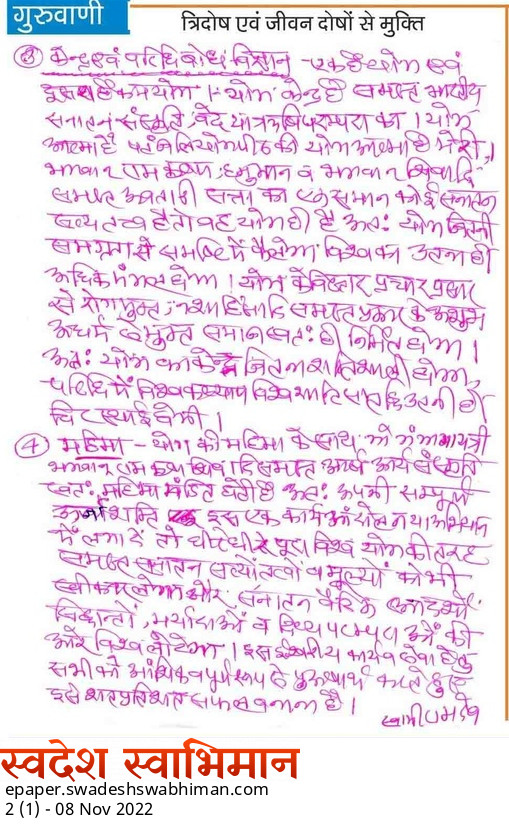 गुरुवाणी
त्रिदोष एवं जीवन दोषों से मुक्ति
③ केन्द्र एवं परिधि बोध विज्ञान - एक है योग एवं
दूसरा है कर्मयोग । योग केन्द्र है समस्त भारतीय
सनातन संस्कृति, वेद परम्परा का । योग
आत्मा है पतंजलि योगपीठ की योग आत्मा है मेरी ।
भगवान राम कृष्ण, हनुमान व भगवान शिवादि
समस्त अवतारी सत्ता का एक समान कोई सनातन
सत्य तत्व है तो वह योग ही है अतः योग जितनी
समग्रता से समष्टि में फैलेगा विश्व का उतना ही
अधिक मंगल होगा । योग के विस्तार, प्रचार प्रसार
से रोगमुक्त, नशा हिंसादि समस्त प्रकार के अशुभ
अधर्म से मुक्त समाज स्वतः ही निर्मित होगा ।
अतः योग का केन्द्र जितना शक्तिशाली होगा,
परिधि में विश्व कल्याण विश्व शान्ति उतनी ही
चिर स्थाई होगी ।
④ महिमा - योग की महिमा के साथ गायत्री
भगवान राम कृष्ण शिवादि समस्त आर्ष आर्य संस्कृति
स्वतः महिमा मंडित होती है अतः अपनी सम्पूर्ण
ऊर्जा शक्ति इस एक कार्य आंदोलन या अभियान
में लगा दें तो धीरे धीरे पूरा विश्व योग की तरह
समस्त सनातन सत्यों तत्वों व मूल्यों को भी
स्वीकार लेगा और सनातन वैदिक आदर्शों
सिद्धान्तों, मर्यादाओं व दिव्य परम्पराओं की
ओर विश्व लौटेगा । इस ईश्वरीय कार्य व सेवा हेतु
सभी को आंशिक व पूर्ण रूप से पुरुषार्थ करते हुए
इसे शत प्रतिशत सफल बनाना है ।
स्वामी रामदेव
स्वदेश स्वाभिमान
epaper.swadeshswabhiman.com
2 (1) - 08 Nov 2022